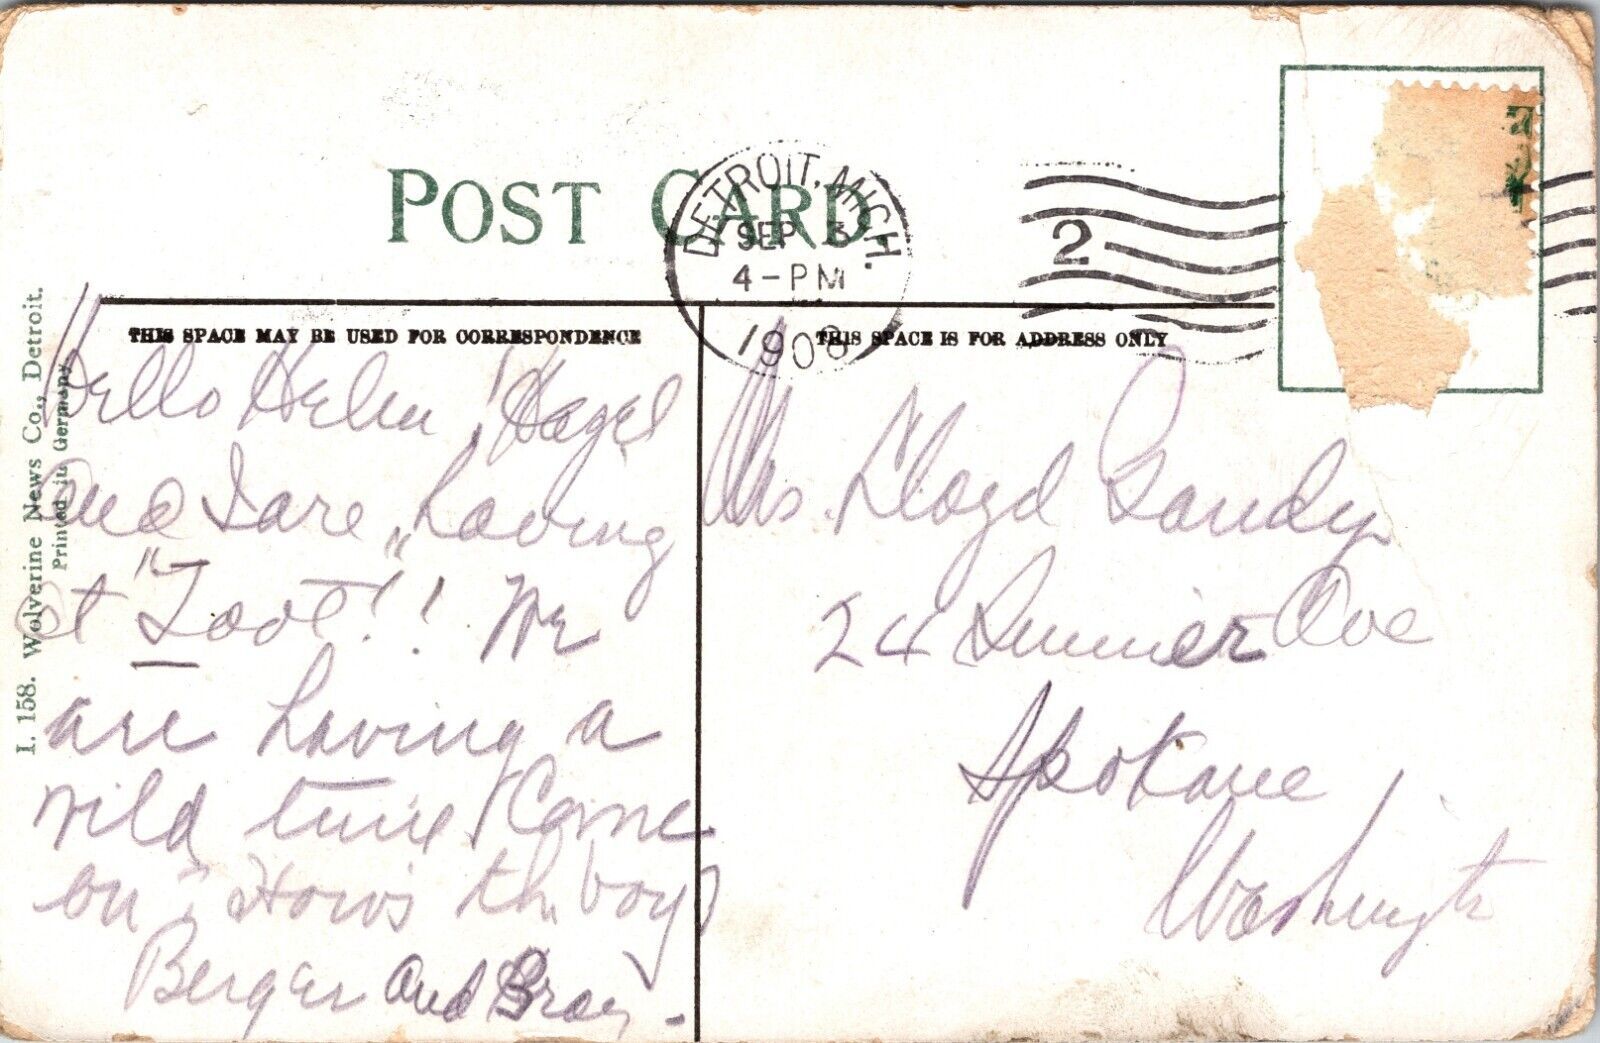 POST CARD
DETROIT, MICH.
SEP 3
4-PM
1908
2
THIS SPACE MAY BE USED FOR CORRESPONDENCE
THIS SPACE IS FOR ADDRESS ONLY
I. 158. Wolverine News Co., Detroit.
Printed in Germany
Hello Helen! Hazel
and I are having
at "Toot"!! We
are having a
wild time Come
on". How's the boy
Berger and
Lloyd Gandy
24 Sumner Ave
Spokane
Washington